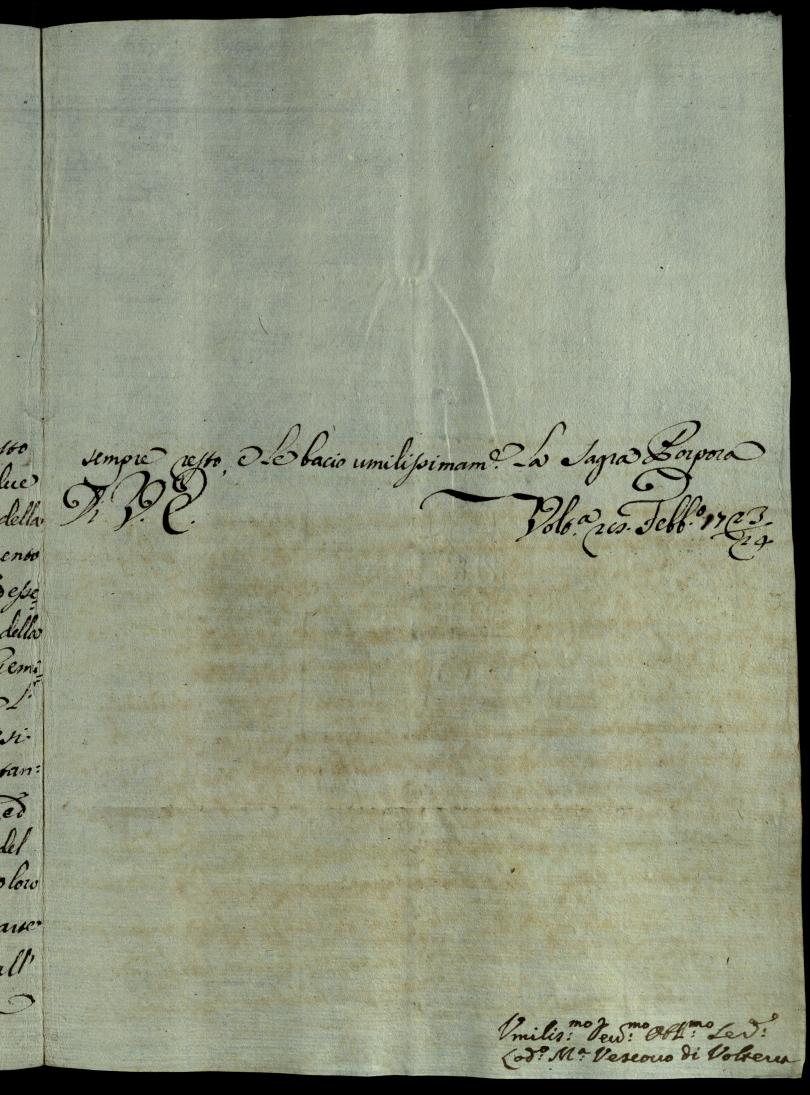 sto
lue
della
ento
esse=
della
Gemi=
si-
tan:
ed
del
loro
arte
all'
sempre resto, e le bacio umilissimam.e la Sagra Porpora
Di V. E. Volt.a Febb.o 1723/24
Umilis:mo Dev:mo Obl:mo Ser.e:
Lod.o M.a Vescovo di Volterra